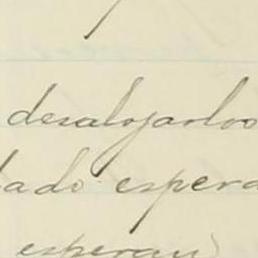 desalojarlos
dado espera
esperan